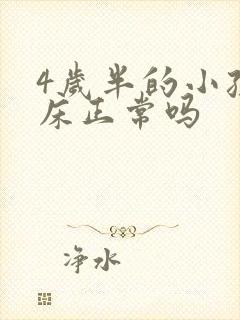 4歲半的小孩
床正常吗
净水